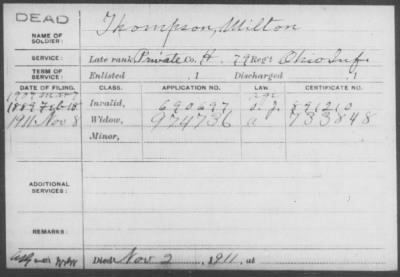 DEAD
Thompson, Milton
NAME OF SOLDIER:
SERVICE: Late rank, Private Co. H, 79 Reg't Ohio Inf.
TERM OF SERVICE: Enlisted , 1 Discharged , 1
DATE OF FILING. CLASS. APPLICATION NO. LAW. CERTIFICATE NO.
1889 Feb 18 Invalid, 690697
1911. Nov 8 Widow, 974736 a 733848
Minor,
ADDITIONAL SERVICES:
REMARKS:
Died Nov 2, 1911, at